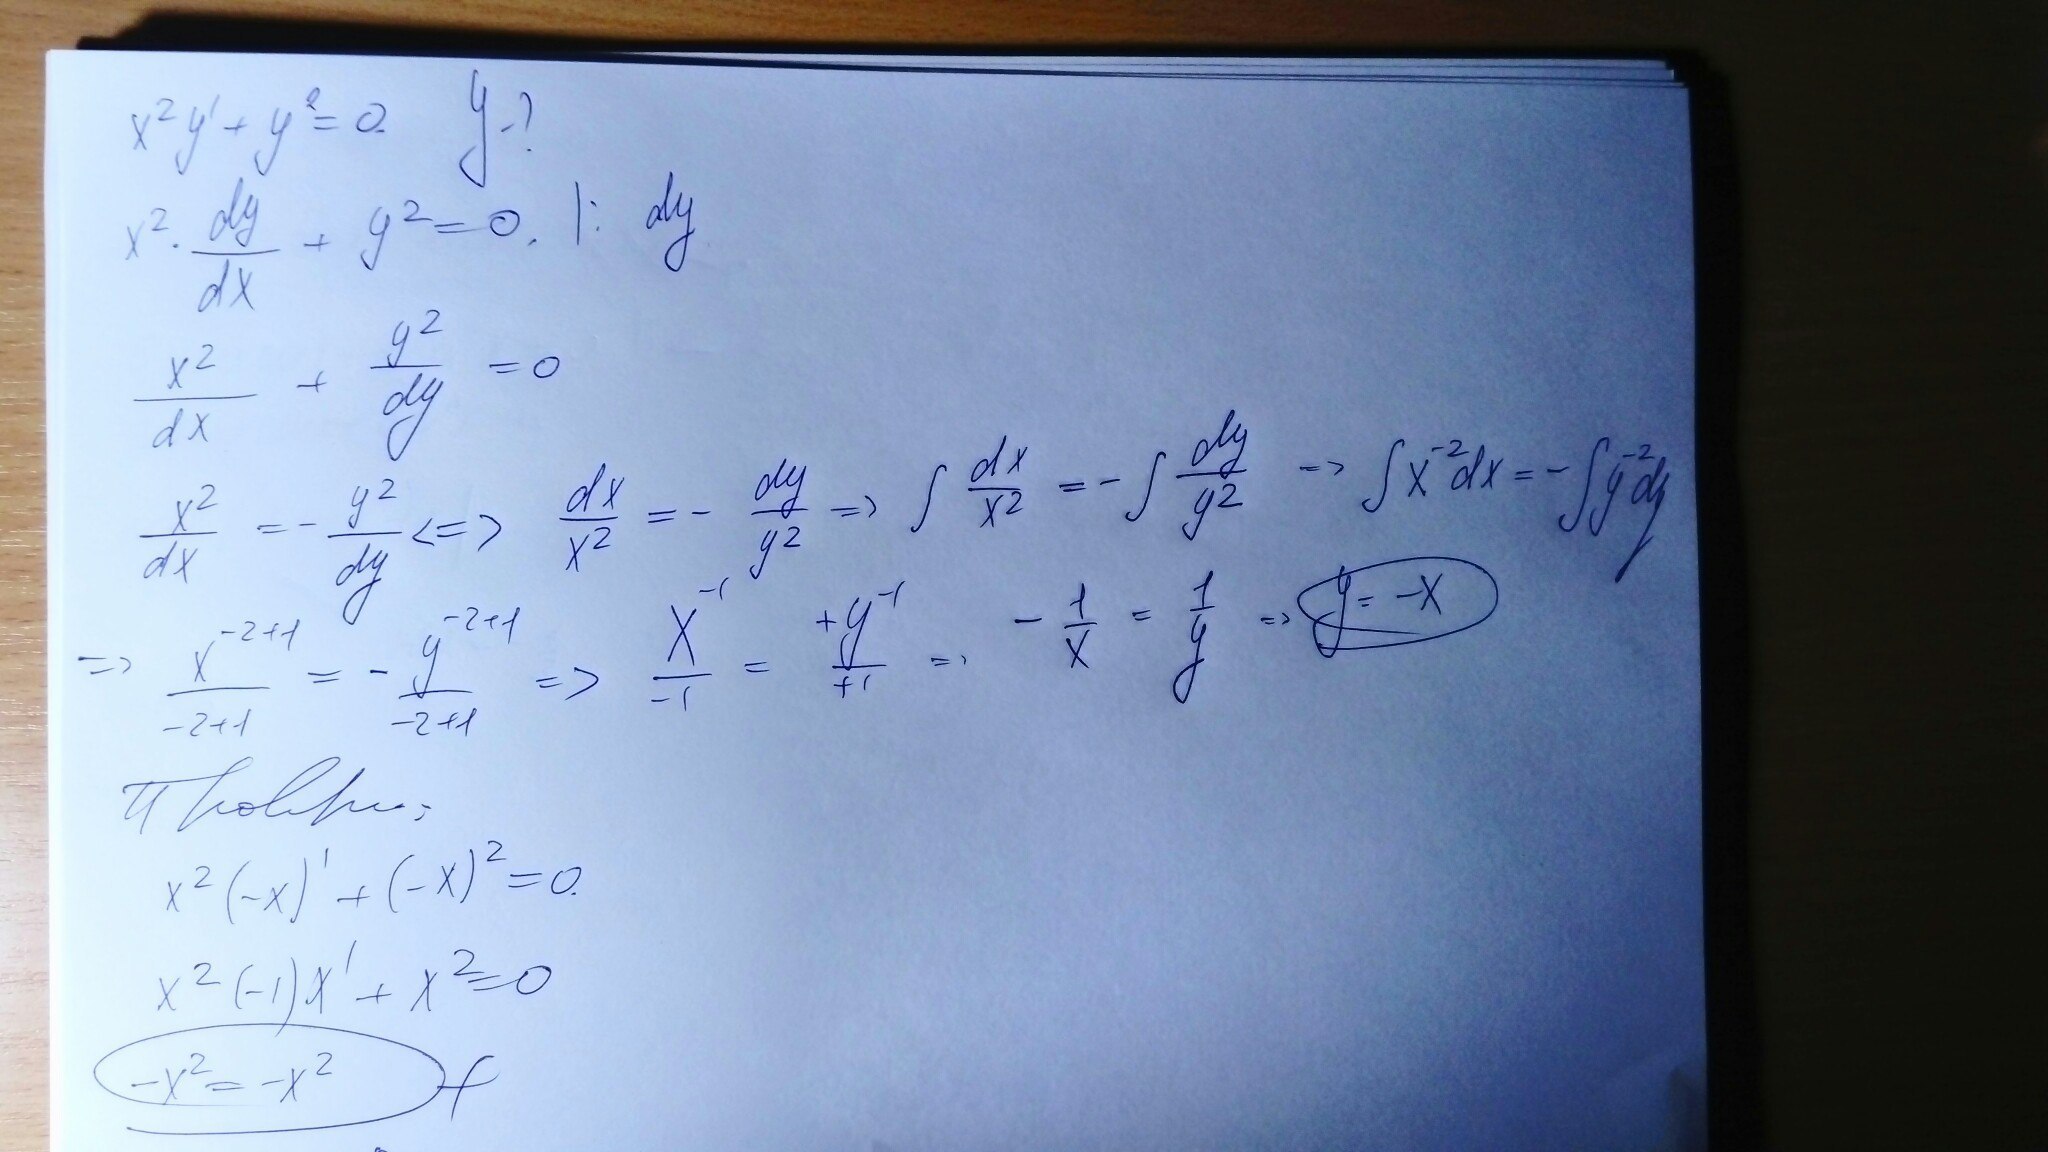 x²y' + y² = 0. y - ?
x² · dy/dx + y² = 0. |: dy
x²/dx + y²/dy = 0
x²/dx = - y²/dy <=> dx/x² = - dy/y² => ∫ dx/x² = - ∫ dy/y² => ∫ x⁻² dx = - ∫ y⁻² dy
=> x⁻²⁺¹/-2+1 = - y⁻²⁺¹/-2+1 => x⁻¹/-1 = +y⁻¹/+1 => - 1/x = 1/y => y = -x
x² (-x)' + (-x)² = 0.
x² (-1) x' + x² = 0
-x² = -x²